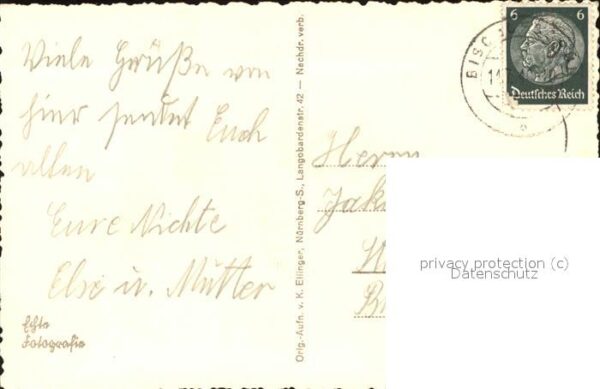 Viele Grüße von
hier sendet Euch
allen
Eure Nichte
Else u. Mutter
Echte
Fotografie
Orig.-Aufn. v. K. Ellinger, Nürnberg-S., Langobardenstr. 42 — Nachdr. verb.
6 6
Deutsches Reich
BISC
11
Herrn
Jak
privacy protection (c)
Datenschutz